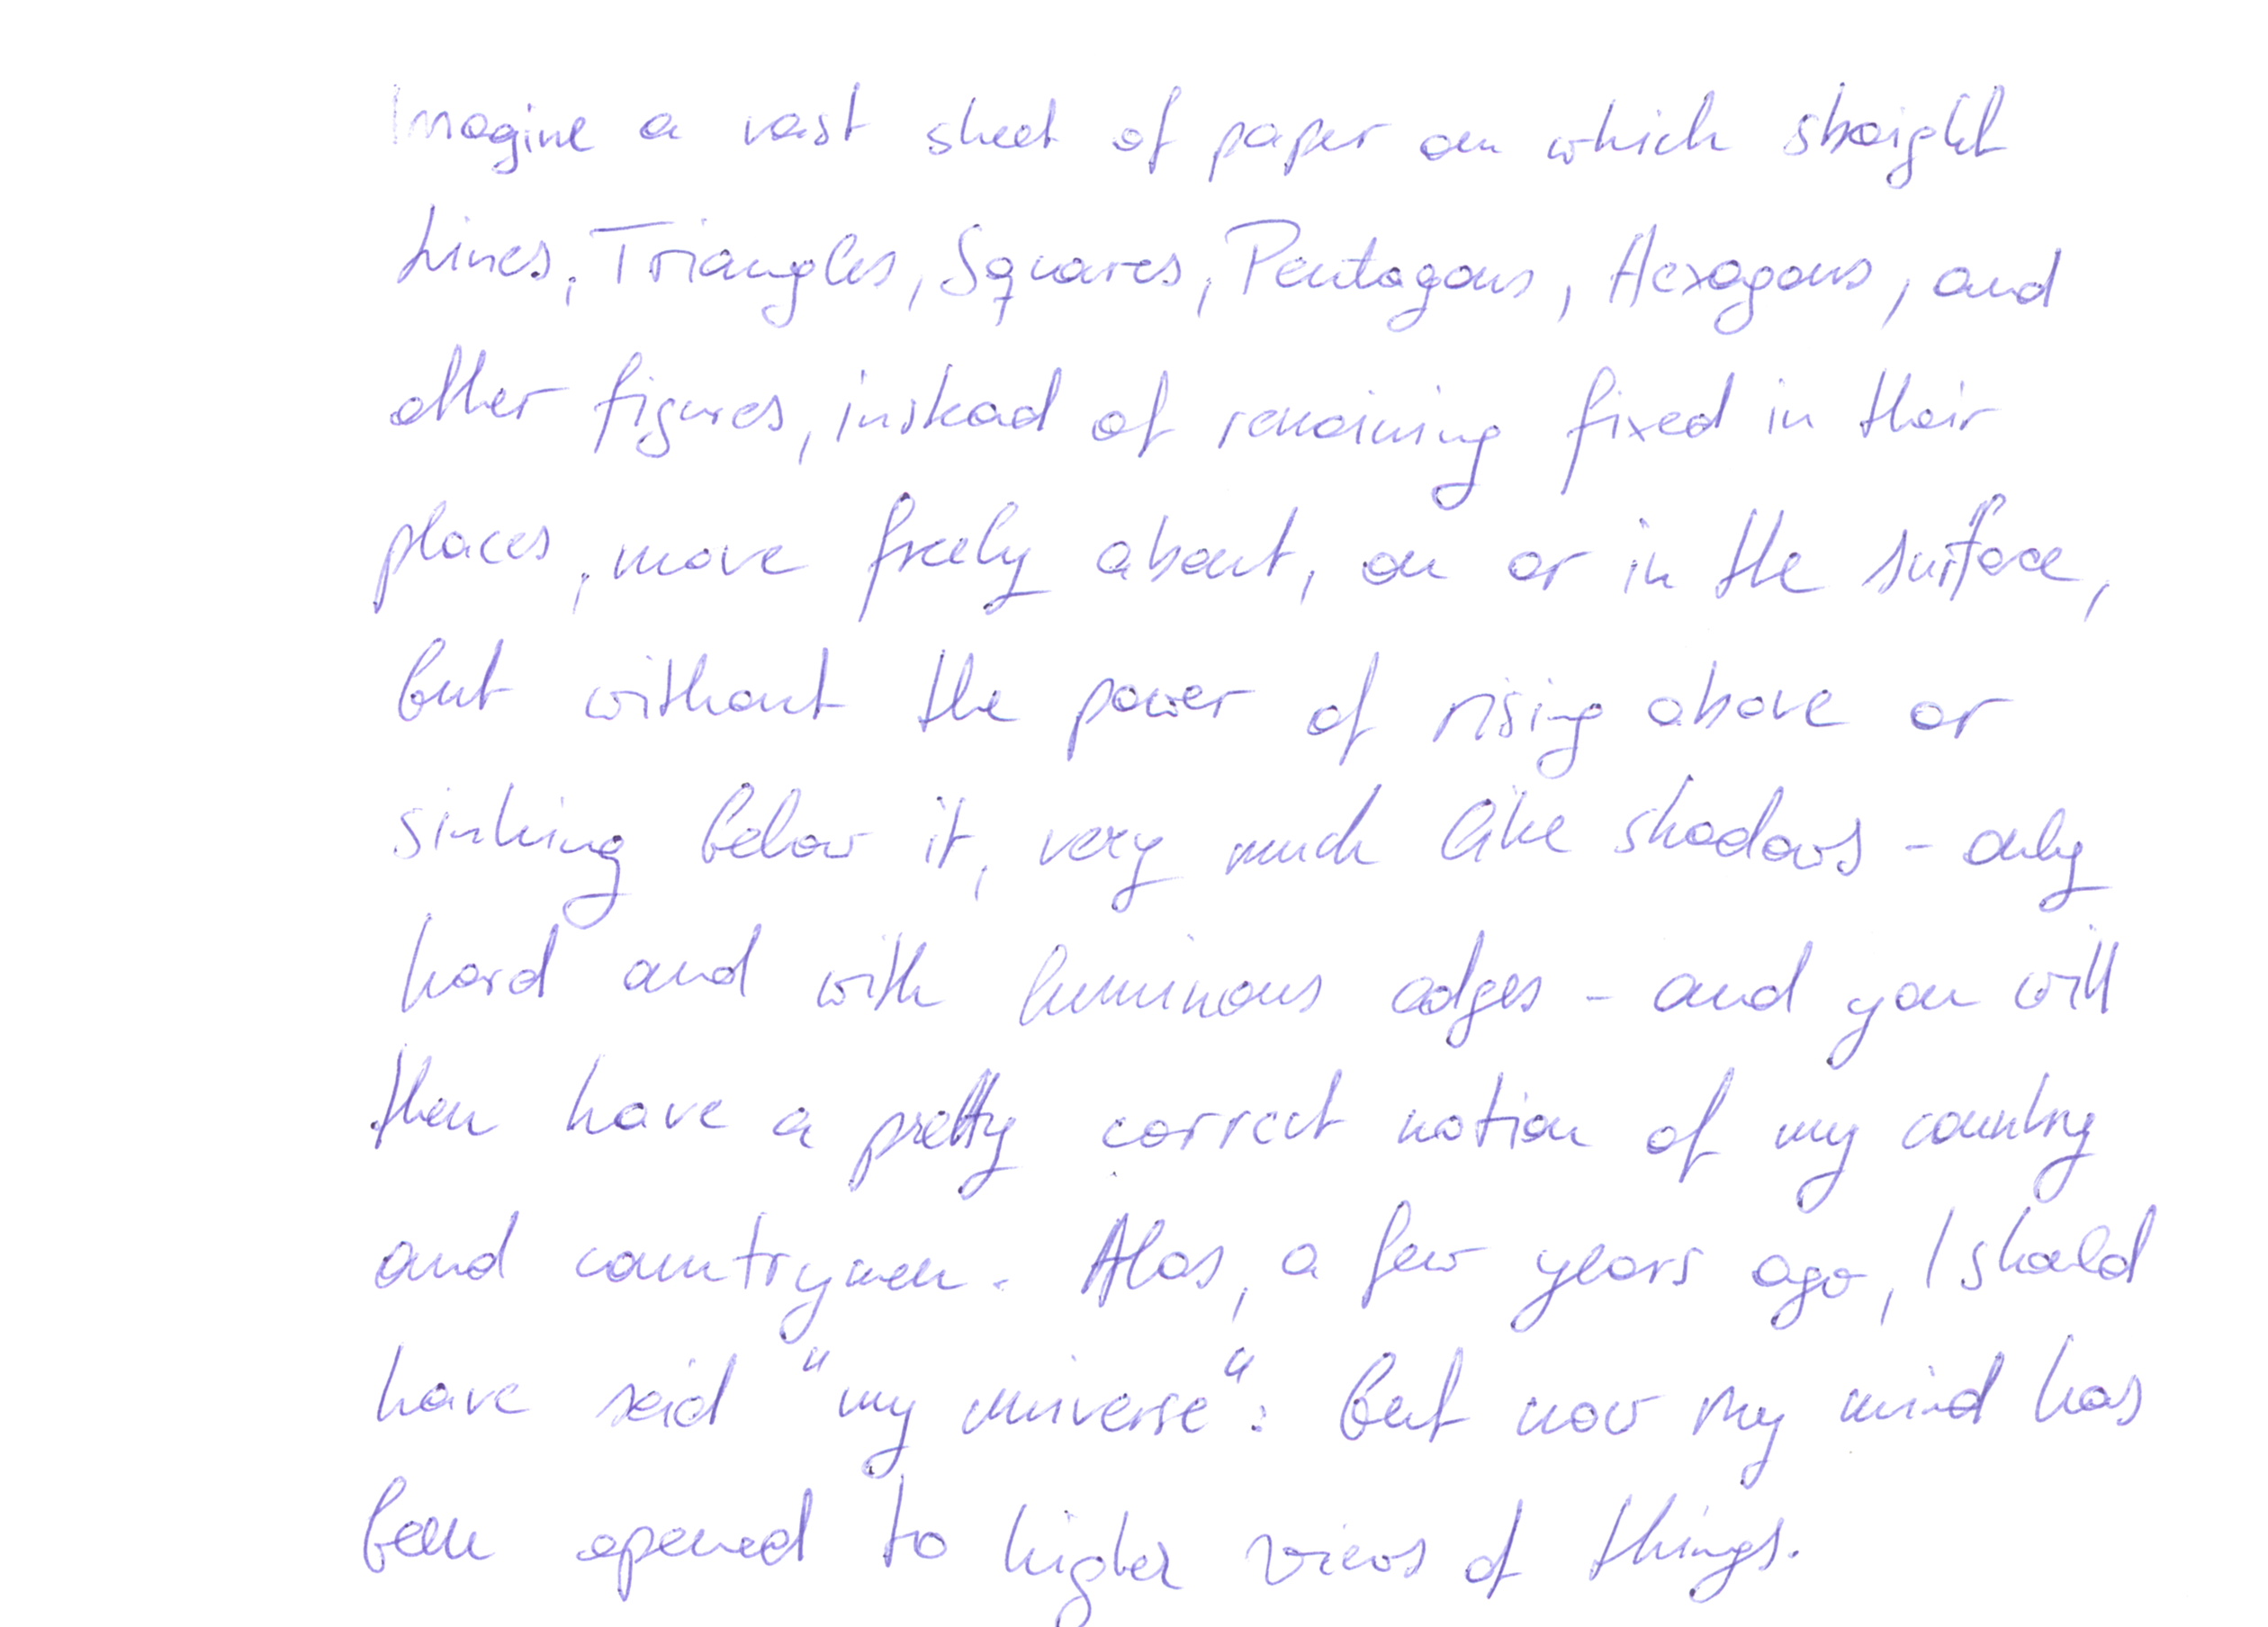 Imagine a vast sheet of paper on which straight
Lines, Triangles, Squares, Pentagons, Hexagons, and
other figures, instead of remaining fixed in their
places, move freely about, on or in the surface,
but without the power of rising above or
sinking below it, very much like shadows - only
hard and with luminous edges - and you will
then have a pretty correct notion of my country
and countrymen. Alas, a few years ago, I should
have said "my universe": but now my mind has
been opened to higher views of things.